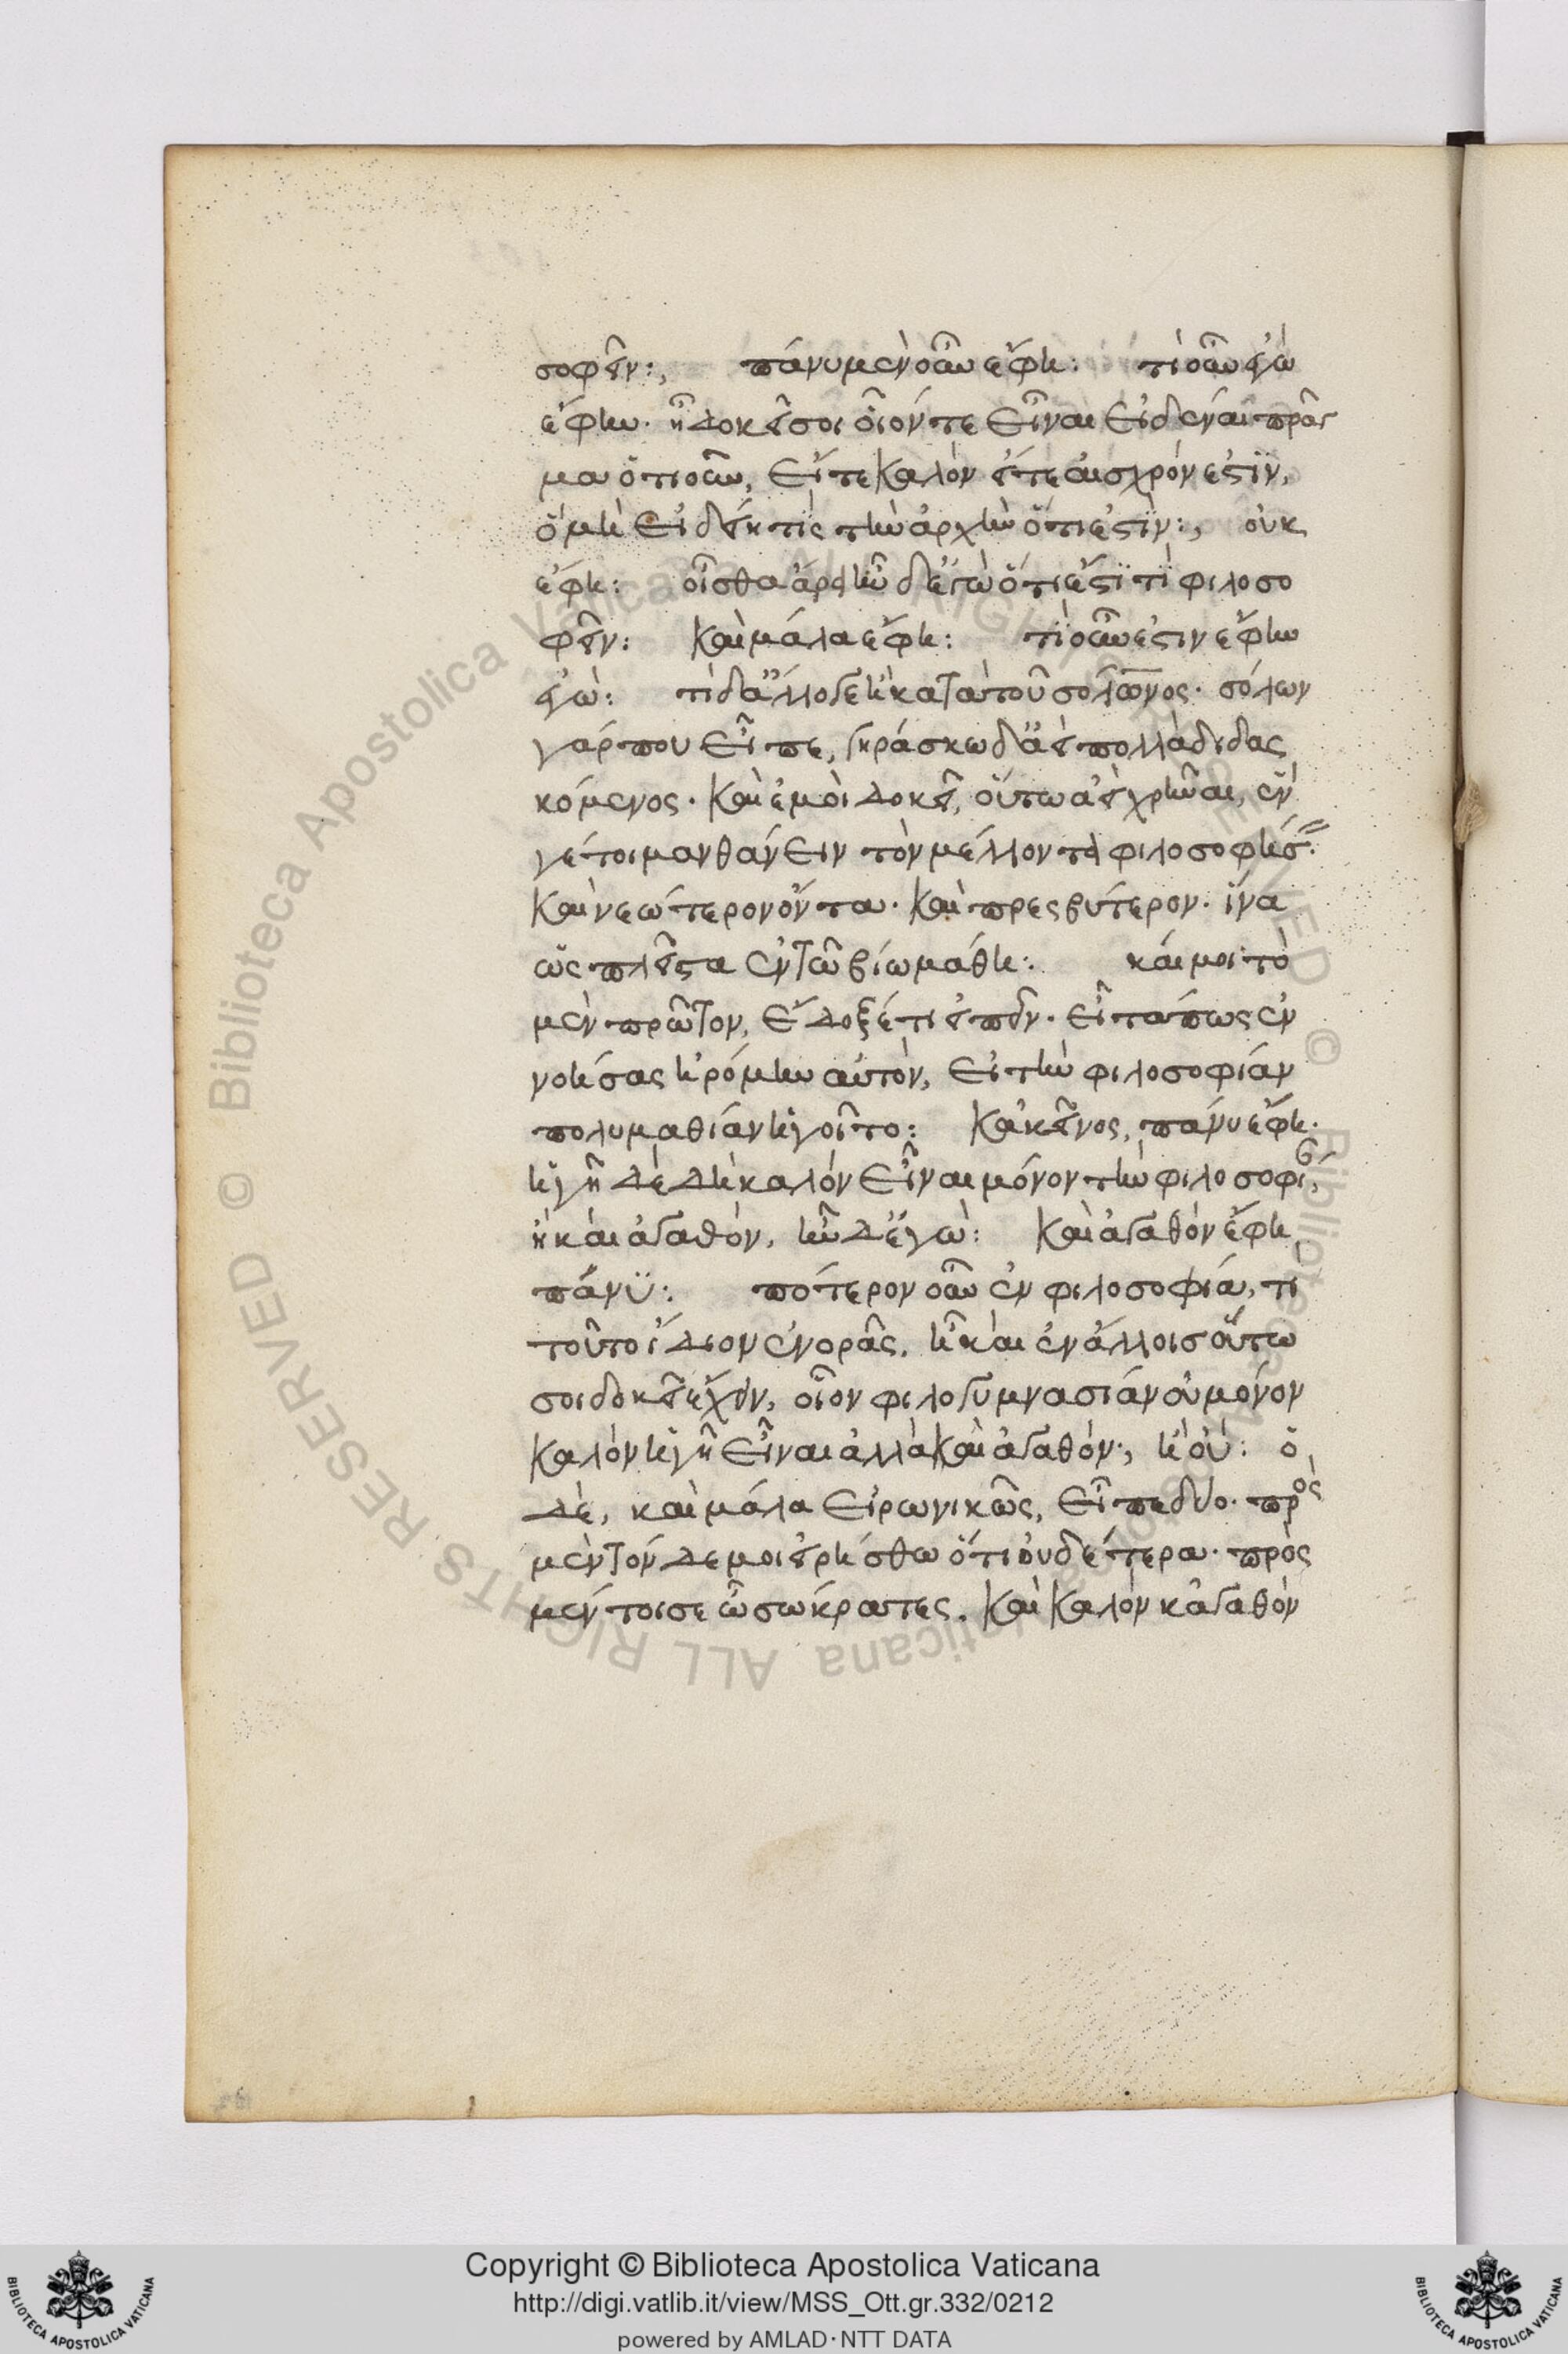 σοφεῖν:, πάνυ μὲν οὖν ἔφη: τί οὖν ἐγὼ
ἔφην. ἢ δοκεῖ σοι οἷόν τε εἶναι εἰδέναι πρᾶγ
μα ὁτιοῦν, εἴτε καλὸν εἴτε αἰσχρόν ἐστϊν,
ὃ μὴ εἰδείη τὶς τὴν ἀρχὴν ὅτι ἐστϊν:, οὐκ
ἔφη: οἶσθα ἄρα ἦν δ' ἐγὼ ὅτι ἔστϊ τὶ φιλοσο
φεῖν: καὶ μάλα ἔφη: τί οὖν ἐστιν ἔφην
ἐγὼ: τί δ' ἄλλο γε ἢ κατὰ τοῦ σολῶνος. σόλων
γάρ που εἶπε, γηράσκω δ' ἀεὶ πολλὰ διδασ
κόμενος. καὶ ἐμοὶ δοκεῖ, οὕτω ἀεὶ χρῆναι, ἕν
γέ τοι μανθάνειν τὸν μέλλοντα φιλοσοφήσ.
καὶ νεώτερον ὄντα. καὶ πρεσβύτερον. ἵνα
ὡς πλεῖστα ἐν τῶ βίω μάθη: καί μοι τὸ
μὲν πρῶτον, ἔδοξέ τι εἰπεῖν. εἶτά πως ἐν
νοήσας ἠρόμην αὐτὸν, εἰ τὴν φιλοσοφίαν
πολυμαθίαν ἡγοῖτο: κἀκεῖνος, πάνυ ἔφη.
ἡγῆ δὲ δὴ καλὸν εἶναι μόνον τὴν φιλοσοφί,
ἢ καὶ ἀγαθὸν, ἦν δ' ἐγὼ: καὶ ἀγαθὸν ἔφη,
πάνϋ: πότερον οὖν ἐν φιλοσοφία, τὶ
τοῦτο ἴδιον ἐνορᾶς, ἢ καὶ ἐν ἄλλοις οὕτω
σοι δοκεῖ ἔχειν, οἷον φιλογυμνασίαν οὐ μόνον
καλὸν ἡγῆ εἶναι ἀλλὰ καὶ ἀγαθὸν:, ἢ οὔ: ὁ
δὲ, καὶ μάλα εἰρωνικῶς, εἶπε δύο. πρὸς
μὲν τόν δέ μοι εἰρήσθω ὅτι οὐδέτερα. πρὸς
μέν τοι σε ὦ σώκρατες, καὶ καλὸν κἀγαθὸν
Copyright © Biblioteca Apostolica Vaticana
http://digi.vatlib.it/view/MSS_Ott.gr.332/0212
powered by AMLAD·NTT DATA